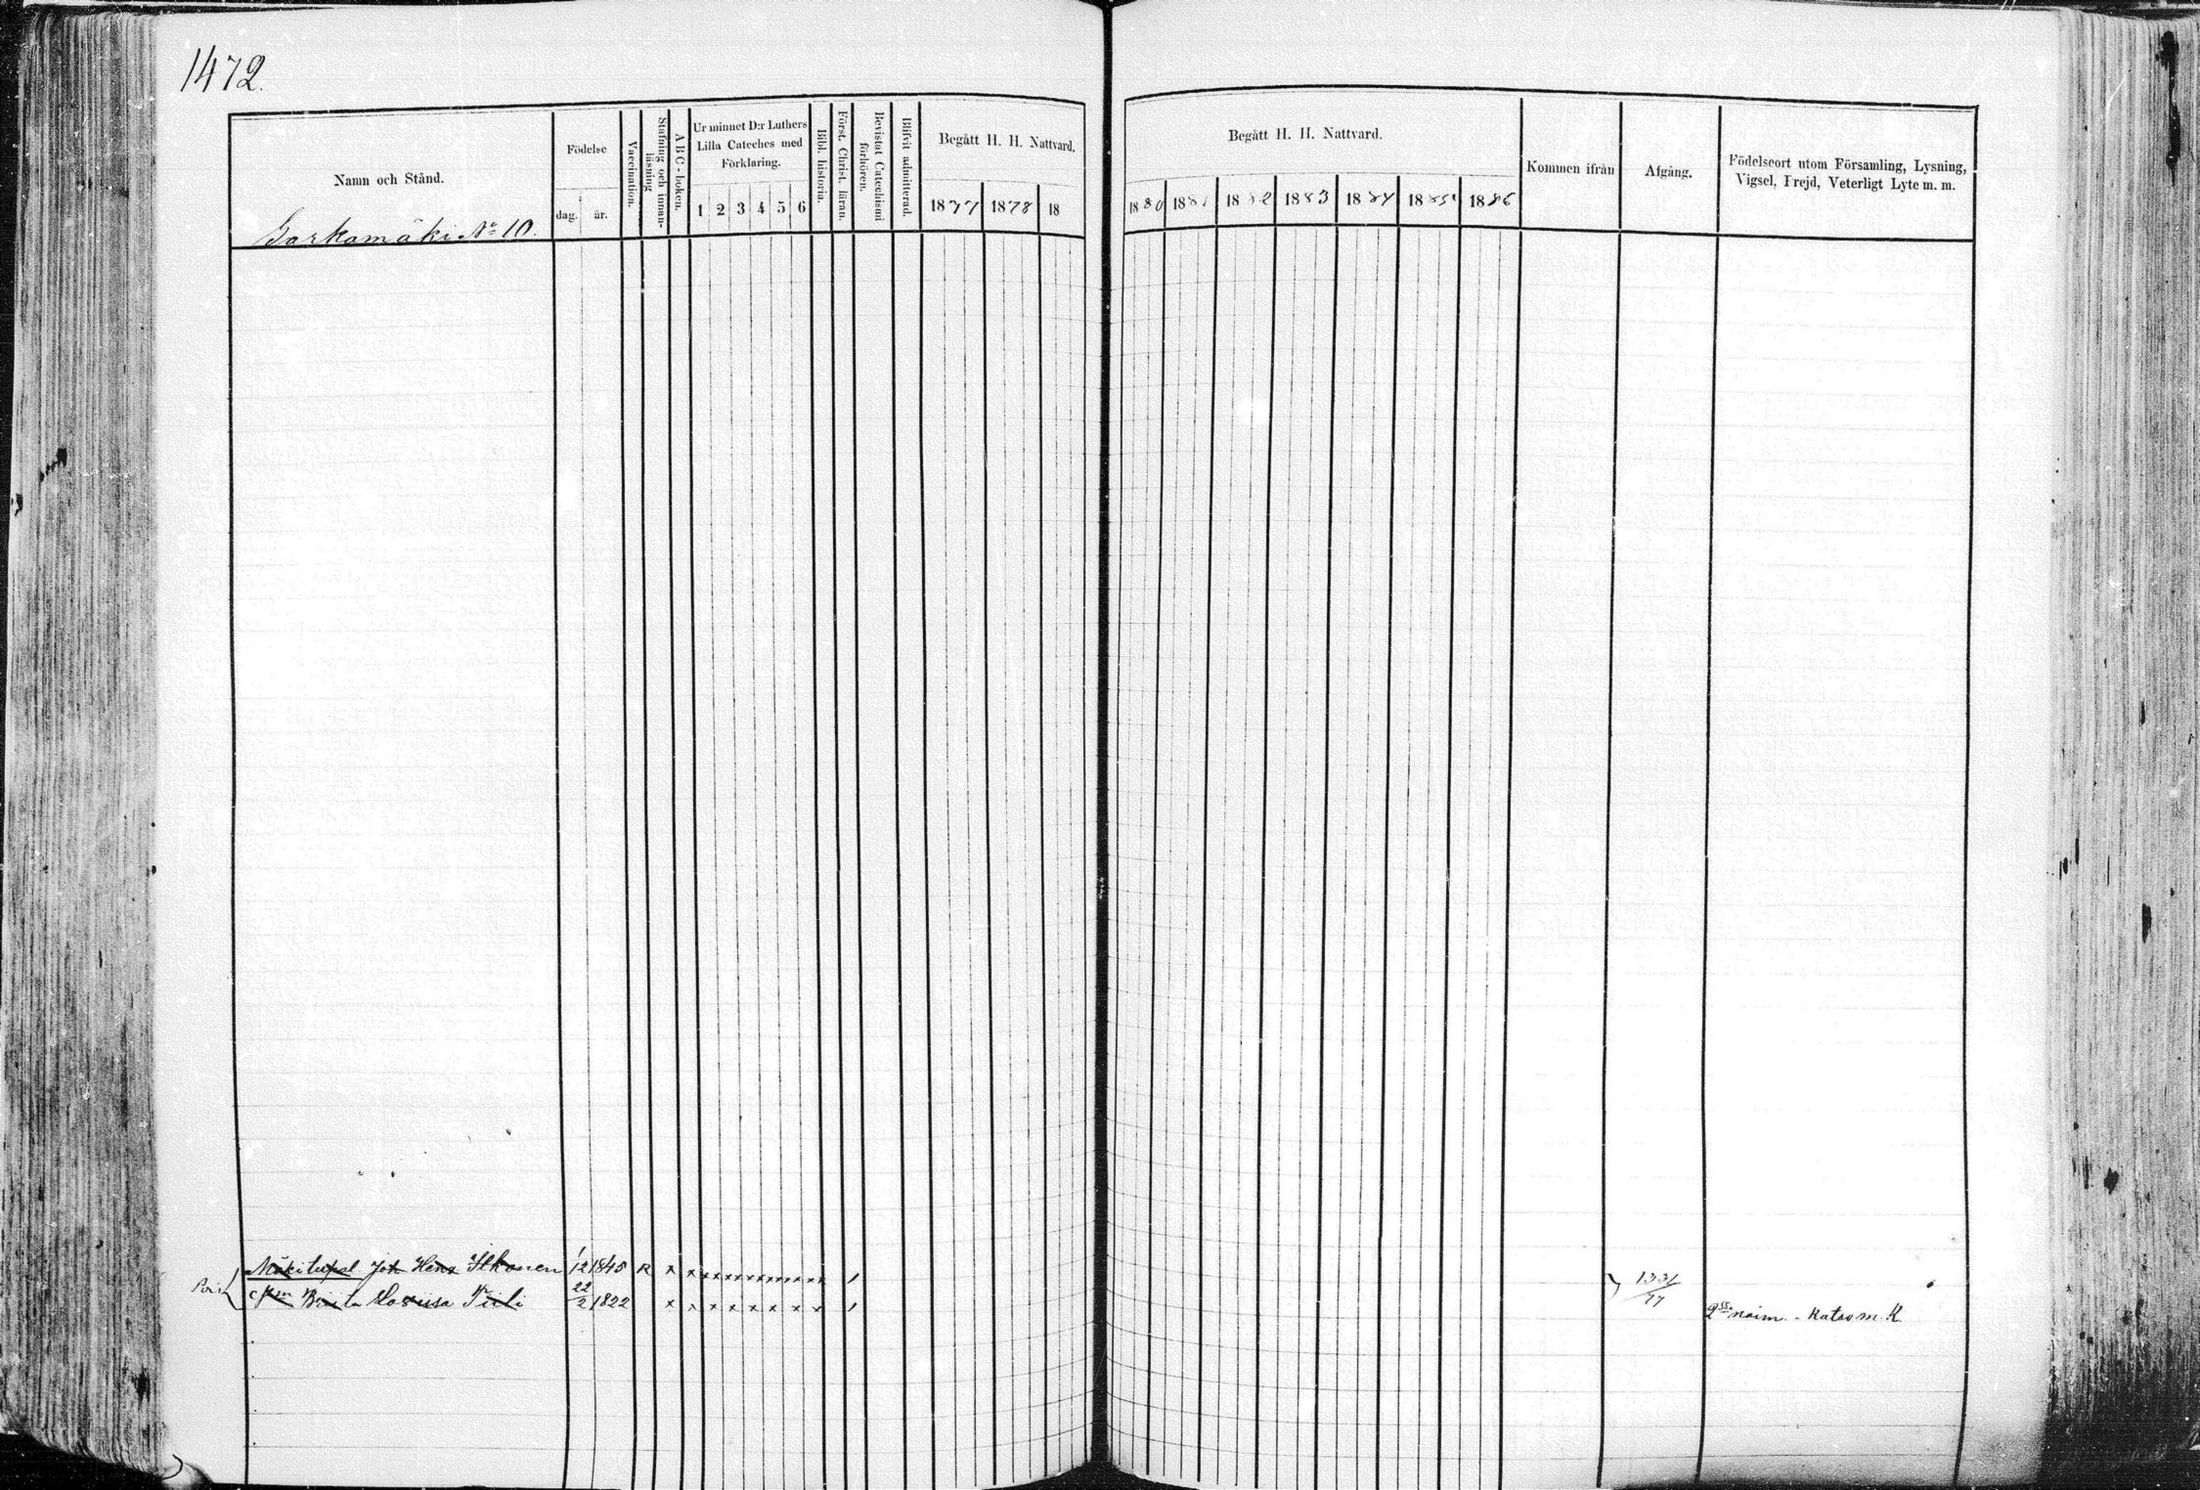 1472.
Namn och Stånd.
Sarkamäki No 10.
Födelse
dag. år.
Vaccination.
Stafning och innanläsning
ABC-boken.
Ur minnet D:r Luthers Lilla Cateches med Förklaring.
1 2 3 4 5 6
Bibl. historia.
Först. Christ. läran.
Bevistat Catechismi förhören.
Blifvit admitterad.
Begått H. H. Nattvard.
1877 1878 18
Begått H. H. Nattvard.
1880 1881 1882 1883 1884 1885 1886
Kommen ifrån
Afgång.
Födelseort utom Församling, Lysning, Vigsel, Frejd, Veterligt Lyte m. m.
Mäkitupal Joh Hen Ikonen 1/12 1845 R x x x x x x x x x x x x /
Brita Lovisa Tiili 22/2 1822 x x x x x x x x /
1331/77
2ss naim. - Katso m. K.